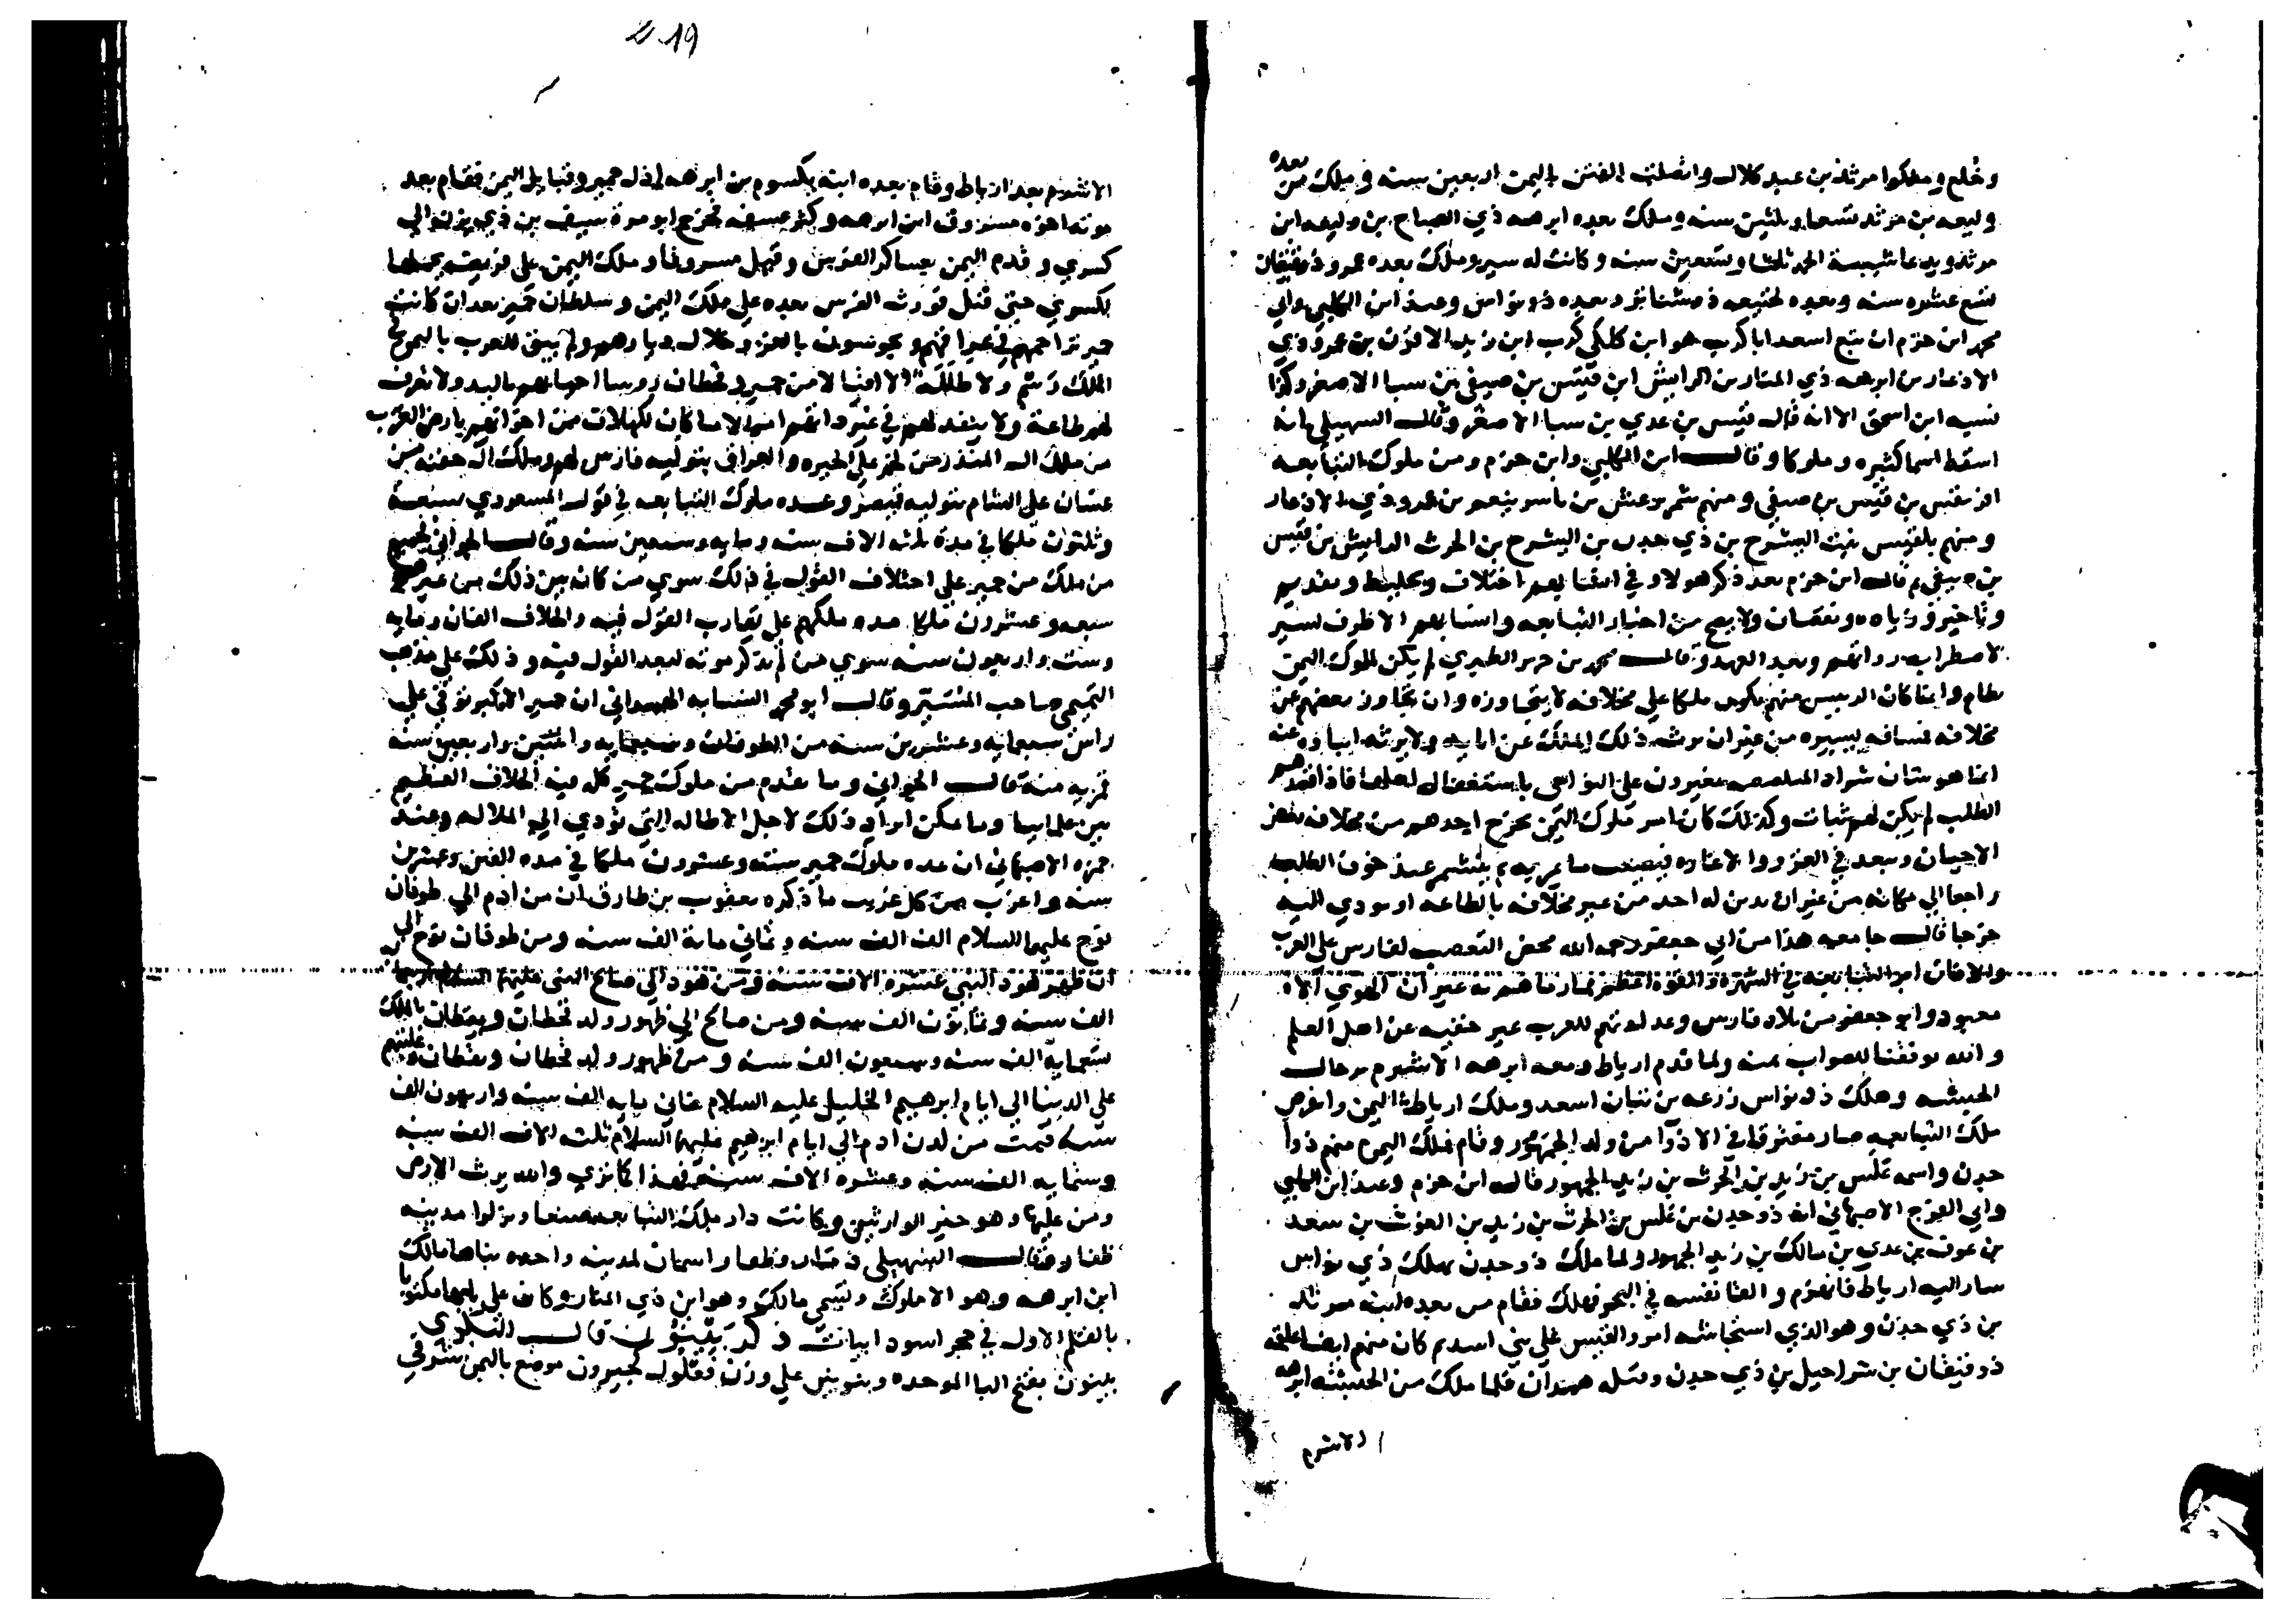 وخلع وملكوا مرثد بن عبد كلال واتصلت الفتن باليمن اربعين سنه وملك من بعده
وليعه بن مرثد تسعا وثلثين سنه وملك بعده ابرهه ذي الصباح بن وليعه ابن
مرثد ثلثا وتسعين سنه وكانت له سير وملك بعده عمرو ذوقيفان
تسع عشره سنه وبعده لختيعه ذو شناتر وبعده ذو نواس وعند ابن الكلبي وابي
محمد ابن حزم ان تبع اسعد ابا كرب هو ابن كلكي كرب ابن زيد الاقرن بن عمرو ذي
الاذعار بن ابرهه ذي المنار بن الرايش ابن قيس بن صيفي بن سبا الاصغر وكذا
نسبه ابن اسحق الا انه قال قيس بن عدي بن سبا الاصغر وقال السهيلي انه
اسقط اسما كثيره وملوكا وقال ابن الكلبي وابن حزم ومن ملوك التبابعه
افريقس بن قيس بن صيفي ومنهم شمر يرعش بن ياسر ينعم بن عمرو ذي الاذعار
ومنهم بلقيس بنت اليشرح بن ذي جدن بن اليشرح بن الحرث الرايش بن قيس
بن صيفي ثم قال ابن حزم بعد ذكر هولا وفي انسابهم اختلاف وتخليط وتقديم
وتاخير وزياده ونقصان ولا يصح من اخبار التبابعه وانسابهم الا طرف يسير
لاضطراب رواتهم وبعد العهد وقال محمد بن جرير الطبري لم يكن لملوك اليمن
نظام وانما كان الرييس منهم يكون ملكا علي مخلافه لا يتجاوزه وان تجاوز بعضهم عن
مخلافه لمسافه يسيره من غير ان يرث ذلك الملك عن ابايه ولا يرثه ابناوه عنه
انما هو شان شراد المتلصصه يغيرون علي النواحي باستغفال اهلها فاذا قصدهم
الطلب لم يكن لهم ثبات وكذلك كان امر ملوك اليمن يخرج احدهم من مخلافه بعض
الاحيان ويبعد في الغزو والاغاره فيصيب ما يمر به ثم يتشمر عند خوف الطلب
راجعا الي مكانه من غير ان يدين له احد من غير مخلافه بالطاعه او يودي اليه
خرجا قال جامعه هذا من ابي جعفر رحمه الله محض التعصب لفارس علي العرب
والا فان امر التبابعه في الشهره والقوه اعظم غير ان الهوي اله
معبود وابو جعفر من بلاد فارس وعداوتهم للعرب غير خفيه عن اهل العلم
والله يوفقنا للصواب بمنه ولما قدم ارياط ومعه ابرهه الاشرم برجال
الحبشه وهلك ذو نواس زرعه بن تبان اسعد وملك ارياط اليمن وانقرض
ملك التبابعه صار مفترقا في الاذوا من ولد الجمهور وقام بملك اليمن منهم ذوا
جدن واسمه علس بن زيد بن الحرث بن زيد الجمهور قاله ابن حزم وعند ابن الكلبي
وابي الفرج الاصبهاني انه ذو جدن بن علس بن الحرث بن زيد بن الغوث بن سعد
بن عوف بن عدي بن مالك بن زيد الجمهور ولما ملك ذو جدن بهلك ذي نواس
سار اليه ارياط فانهزم والقا نفسه في البحر فهلك فقام من بعده ابنه مرثد
بن ذي جدن وهو الذي استجاشه امرو القيس علي بني اسد ثم كان منهم ايضا علقمه
ذو قيفان بن شراحيل بن ذي جدن وقتله همدان فلما ملك من الحبشه ابرهه
الاشرم
219
الاشرم بعد ارياط وقام بعده ابنه يكسوم بن ابرهه اذل حمير وقبايل اليمن فقام بعد
موته اخوه مسروق ابن ابرهه وكثر عسفه فخرج ابو مره سيف بن ذي يزن الي
كسري وقدم اليمن بعساكر الفرس وقتل مسروقا وملك اليمن علي فريضه يحملها
لكسري حتي قتل فورث الفرس بعده علي ملك اليمن وسلطان حمير بعد ان كانت
حمير تزاحمهم في عراقهم ويجوسون بالغزو خلال ديارهم ولم يبق للعرب باليمن في
الملك رسم ولا طلل الا اقيالا من حمير وقحطان روسا احيايهم بالبدو لا تعرف
لهم طاعة ولا ينفذ لهم في غير ذاتهم امر الا ما كان لكهلان من اخواتهم بارض العرب
من ملك ال المنذر من لخم علي الحيره والعراق بتوليه فارس لهم وملك ال جفنه من
غسان علي الشام بتوليه قيصر وعده ملوك التبابعه في قول المسعودي سبعة
وثلثون ملكا في مدة ثلثه الاف سنه ومايه وتسعين سنه وقال الجواني فجميع
من ملك من حمير علي اختلاف القول في ذلك سوي من كان بين ذلك من غير حمير
سبعه وعشرون ملكا مده ملكهم علي تقارب القول فيه والخلاف الفان ومايه
وست واربعون سنه سوي من لم نذكر موته لبعد القول فيه وذلك علي مذهب
التميمي صاحب المشجر وقال ابو محمد النسابه الهمداني ان حمير الاكبر توفي علي
راس سبعمايه وعشرين سنه من الطوفان
بين علمايها وما يمكن ايراد ذلك لاجل الاطاله التي تودي الي الملاله وعند
حمزه الاصبهاني ان عده ملوك حمير سته وعشرون ملكا في مده الفين وعشرين
سنه واغرب من كل غريب ما ذكره يعقوب بن طارق ان من ادم الي طوفان
نوح عليهما السلام الف الف سنه وثماني ماية الف سنه ومن طوفان نوح الي
ان ظهر هود النبي عشره الاف سنه ومن هود الي صالح النبي عليهم السلام
الف سنه وثمانون الف سنه ومن صالح الي ظهور ولد قحطان ويقطان بالملك
الف سنه وسبعون الف سنه ومن ظهور ولد قحطان ويقطان وغلبتهم
علي الدنيا الي ايام ابرهيم الخليل عليه السلام ثماني مايه الف سنه واربعون الف
سنه فتمت من لدن ادم الي ايام ابرهيم عليهما السلام ثلث الاف الف سنه
وستمايه الف سنه وعشره الاف سنه فهذا كما تري والله يرث الارض
ومن عليها وهو خير الوارثين وكانت دار ملك التبابعه صنعا ونزلوا مدينه
ظفار وقال السهيلي ذمار وظفار اسمان لمدينه واحده بناها مالك
ابن ابرهه وهو الاملوك ويسمي مالك وهو ابن ذي المنار وكان علي بابها مكتوبا
بالقلم الاول في حجر اسود ابيات ذكر بينون قال البكري
بينون بفتح البا الموحده وبنونين علي وزن فعلول كجيرون موضع باليمن شرقي